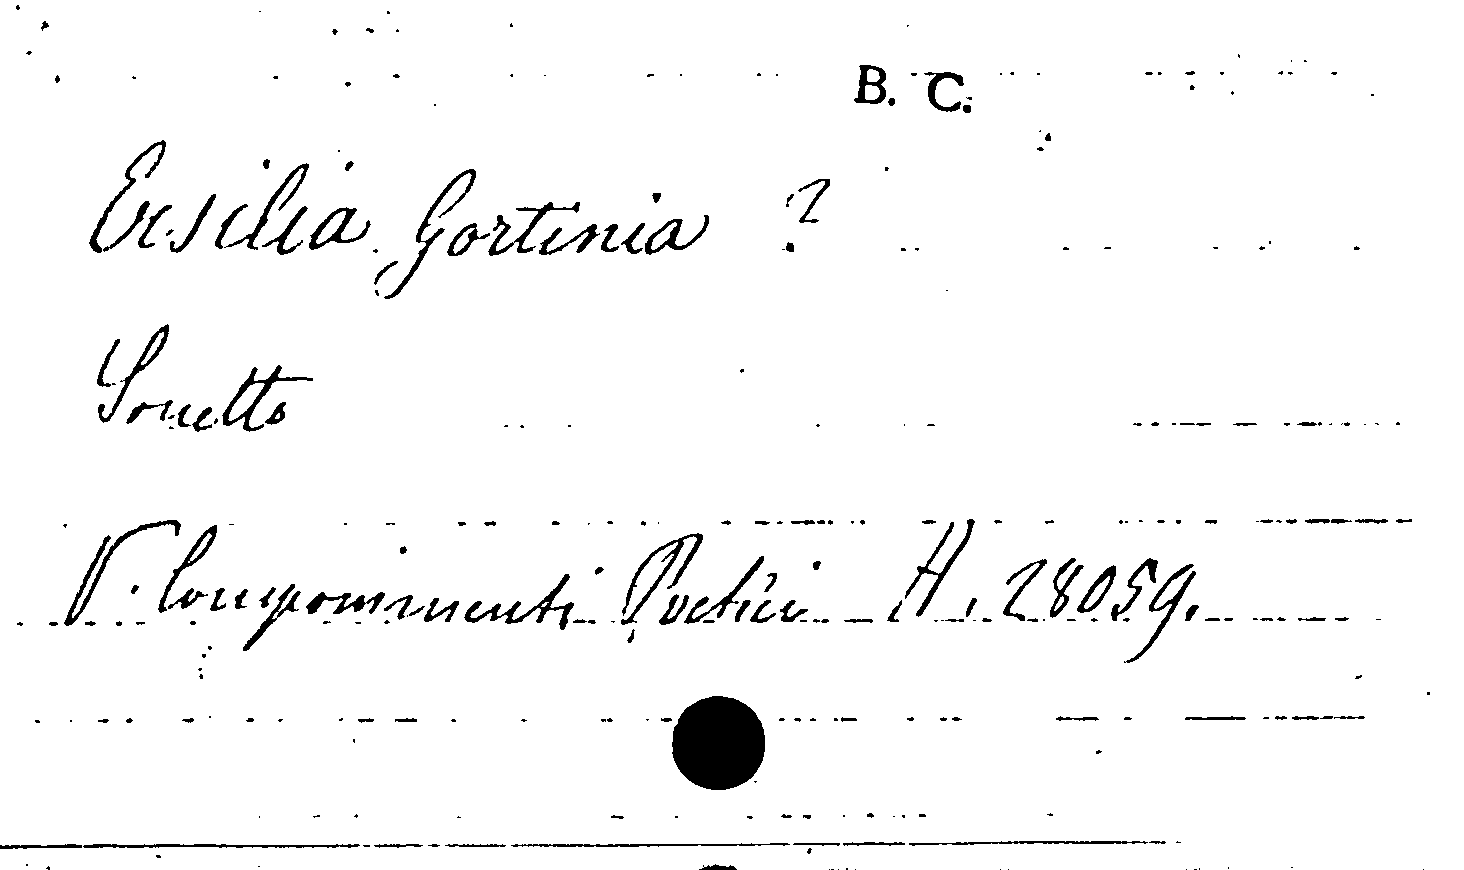 B. C.
Ersilia Gortinia ?
Sonetto
V. Componimenti Poetici H. 28059.